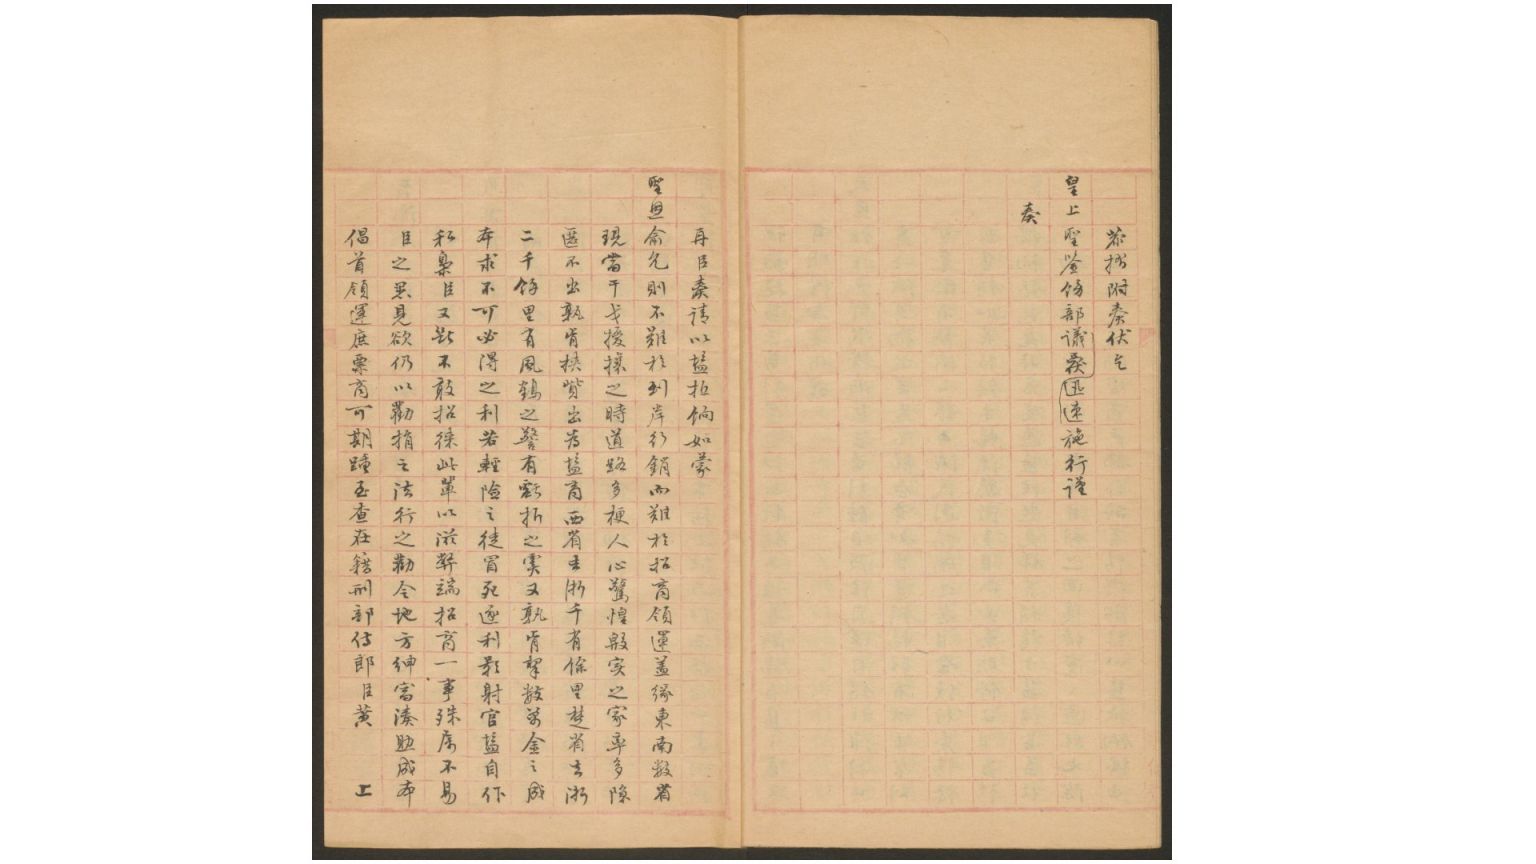 恭摺附奏伏乞
皇上聖鑒飭部議覈迅速施行謹
奏
再臣奏請以鹽抵餉如蒙
聖恩俞允則不難於到岸行銷而難於招商領運蓋緣東南數省
現當干戈擾攘之時道路多梗人心驚惶殷實之家率多隱
匿不出孰肯挾貲出為鹽商西省去浙千有餘里楚省去浙
二千餘里有風鶴之警有虧折之虞又孰肯挈數萬金之成
本求不可必得之利若輕險之徒冒死逐利影射官鹽自作
私梟臣又斷不敢招徠此輩以滋弊端招商一事殊屬不易
臣之愚見欲仍以勸捐之法行之勸令地方紳富湊助成本
倡首領運庶票商可期踵至查在籍刑部侍郎臣黃 上